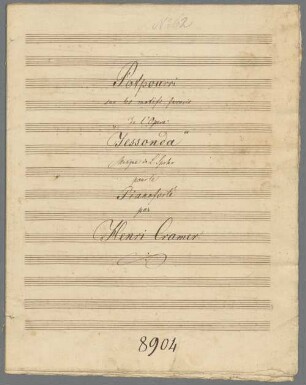 No 62
Potpourri
sur les motifs favoris
de l'Opera
"Jessonda"
de L. Spohr
pour le
Pianoforte
par
Henri Cramer
8904